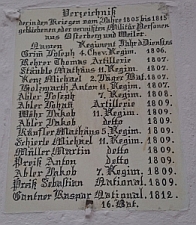 Verzeichniß
der in den Kriegen vom Jahre 1805 bis 1815
gebliebenen oder vermißten Militär Personen
aus Osterberg und Weiler.
Namen Regiment Jahr Dienstes
Grim Joseph 4. Chev. Regim. 1806.
Rehrer Thomas Artillerie 1807.
Stäuble Mathäus 11. Regim. 1807.
Renz Michael Jäger Bat. 1807.
Holzwarth Anton 11. Regim. 1807.
Abler Joseph 7. Regim. 1809.
Abler Johan Artillerie 1809.
Wöhr Johann 11. Regim. 1809.
Abler Jakob detto 1809.
Känfler Mathäus 5. Regim. 1809.
Schierle Michael 11. Regim. 1809.
Müller Martin detto 1809.
Preiß Anton detto 1809.
Abler Jakob 7. Regim. 1809.
Preiß Sebastian National. 1809.
Gantner Kaspar National. 1812.
16. Bat.